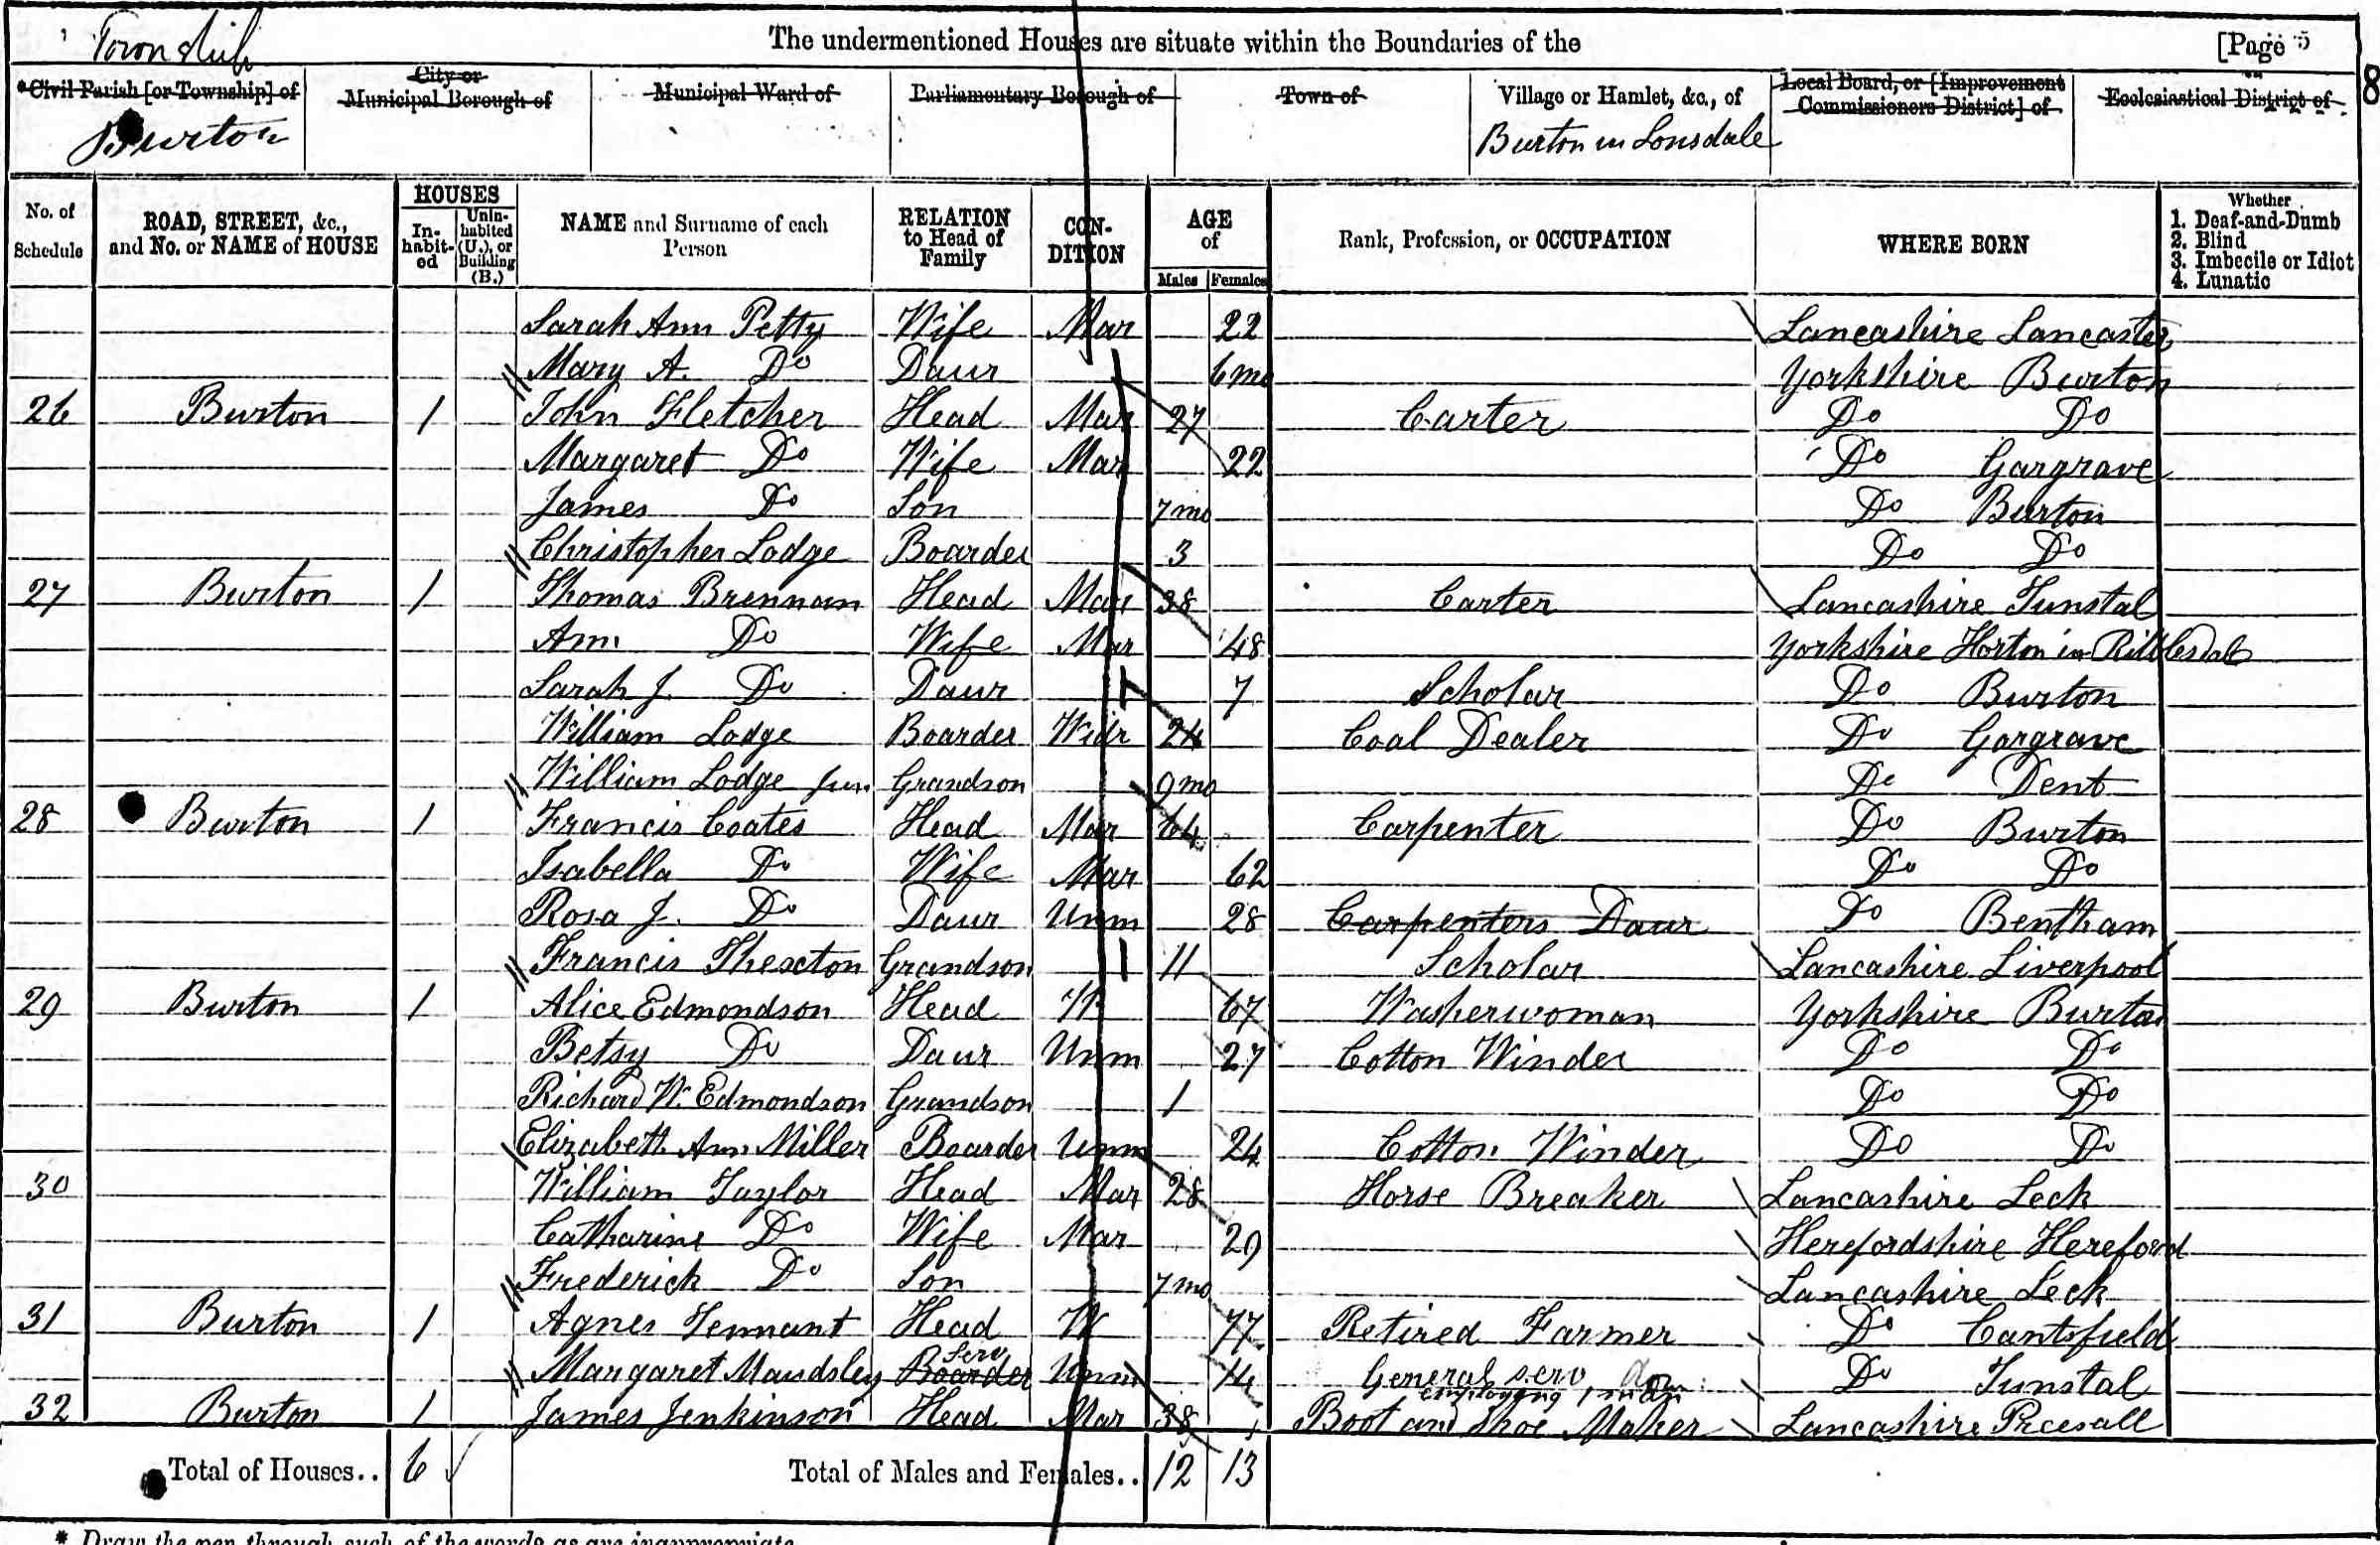 Township
The undermentioned Houses are situate within the Boundaries of the [Page 5
8
*Civil Parish [or Township] of
City or Municipal Borough of
Municipal Ward of
Parliamentary Borough of
Town of
Village or Hamlet, &c., of
Local Board, or [Improvement Commissioners District] of
Ecclesiastical District of
Burton
Burton in Lonsdale
No. of Schedule
ROAD, STREET, &c., and No. or NAME of HOUSE
HOUSES
In-habit-ed
Unin-habited (U.), or Building (B.)
NAME and Surname of each Person
RELATION to Head of Family
CON-DITION
AGE of
Males
Females
Rank, Profession, or OCCUPATION
WHERE BORN
Whether
1. Deaf-and-Dumb
2. Blind
3. Imbecile or Idiot
4. Lunatic
Sarah Ann Petty Wife Mar 22 Lancashire Lancaster
Mary A. Do Daur 6mo Yorkshire Burton
26 Burton 1 John Fletcher Head Mar 27 Carter Do Do
Margaret Do Wife Mar 22 Do Gargrave
James Do Son 7mo Do Burton
Christopher Lodge Boarder 3 Do Do
27 Burton 1 Thomas Brennan Head Mar 38 Carter Lancashire Tunstal
Ann Do Wife Mar 48 Yorkshire Horton in Ribblesdale
Sarah J. Do Daur 7 Scholar Do Burton
William Lodge Boarder Widr 24 Coal Dealer Do Gargrave
William Lodge Jun Grandson 9mo Do Dent
28 Burton 1 Francis Coates Head Mar 64 Carpenter Do Burton
Isabella Do Wife Mar 62 Do Do
Rosa J. Do Daur Unm 28 Carpenters Daur Do Bentham
Francis Thexton Grandson 11 Scholar Lancashire Liverpool
29 Burton 1 Alice Edmondson Head W 67 Washerwoman Yorkshire Burton
Betsy Do Daur Unm 27 Cotton Winder Do Do
Richard W. Edmondson Grandson 1 Do Do
Elizabeth Ann Miller Boarder Unm 24 Cotton Winder Do Do
30 William Taylor Head Mar 28 Horse Breaker Lancashire Leck
Catharine Do Wife Mar 29 Herefordshire Hereford
Frederick Do Son 7mo Lancashire Leck
31 Burton 1 Agnes Tennant Head W 77 Retired Farmer Do Cantsfield
Margaret Maudsley Boarder Serv Unm 14 General serv Do Tunstal
32 Burton 1 James Jenkinson Head Mar 38 Boot and Shoe Maker employing 1 man Lancashire Preesall
Total of Houses.. 6 Total of Males and Females.. 12 13
* Draw the pen through such of the words as are inappropriate.